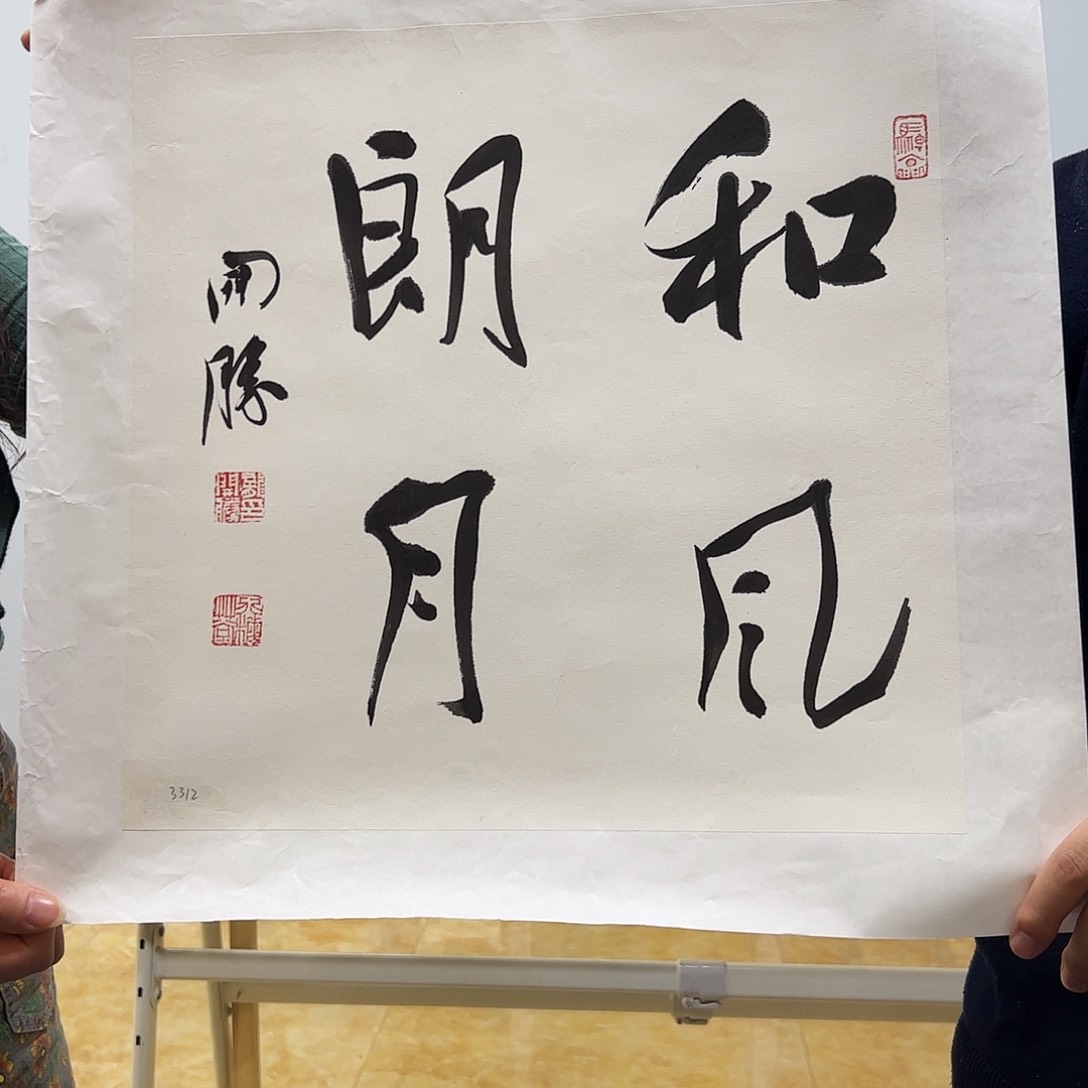 和风
朗月
开胜
3312